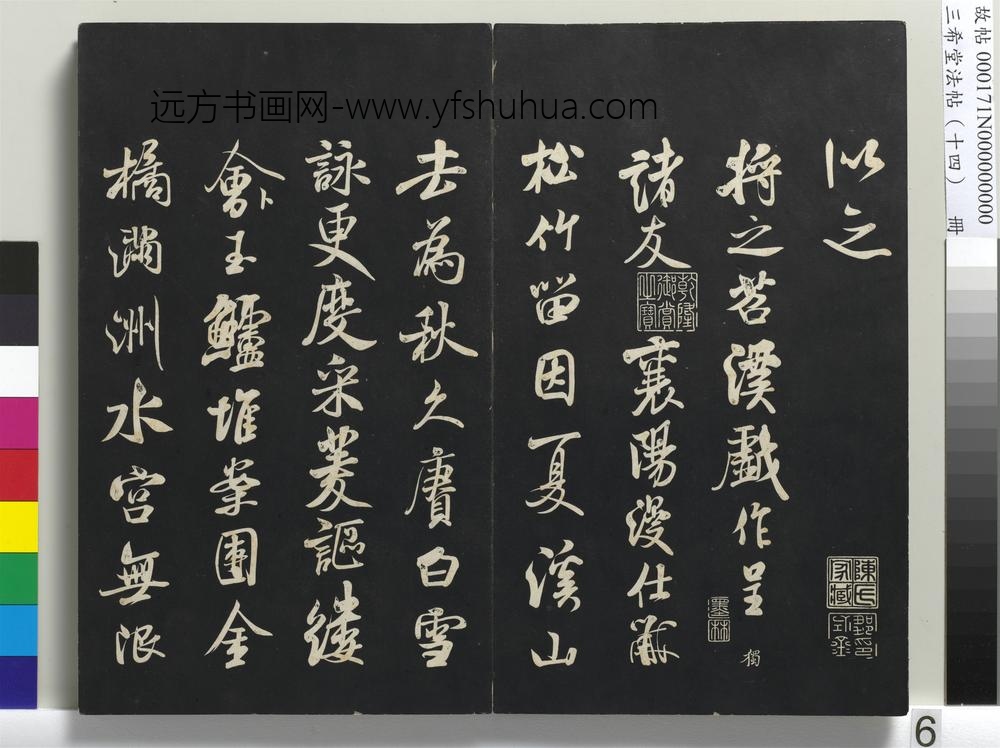 故帖 000171N000000000
三希堂法帖(十四) 冊
远方书画网-www.yfshuhua.com
以之
將之苕溪戲作呈
墨林
獨
諸友
乾隆御賞之寶
襄陽漫仕黻
松竹留因夏溪山
去為秋久賡白雪
詠更度采菱謳縷
會玉鱸堆案團金
橘滿洲水宮無限
6